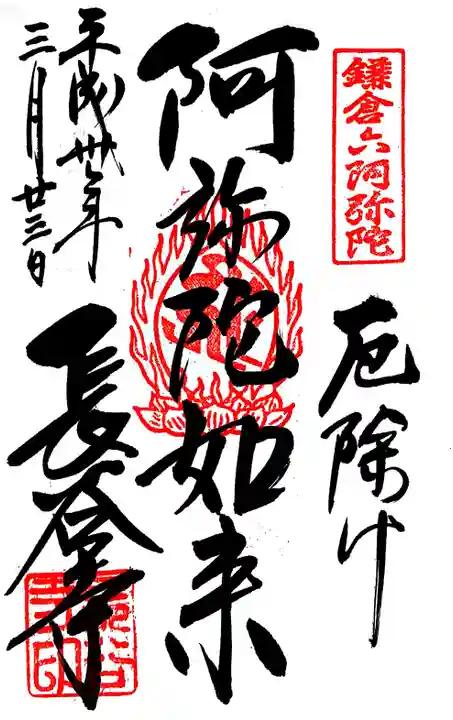 鎌倉六阿弥陀
厄除け
阿弥陀如来
平成卅一年
三月廿三日
長谷寺